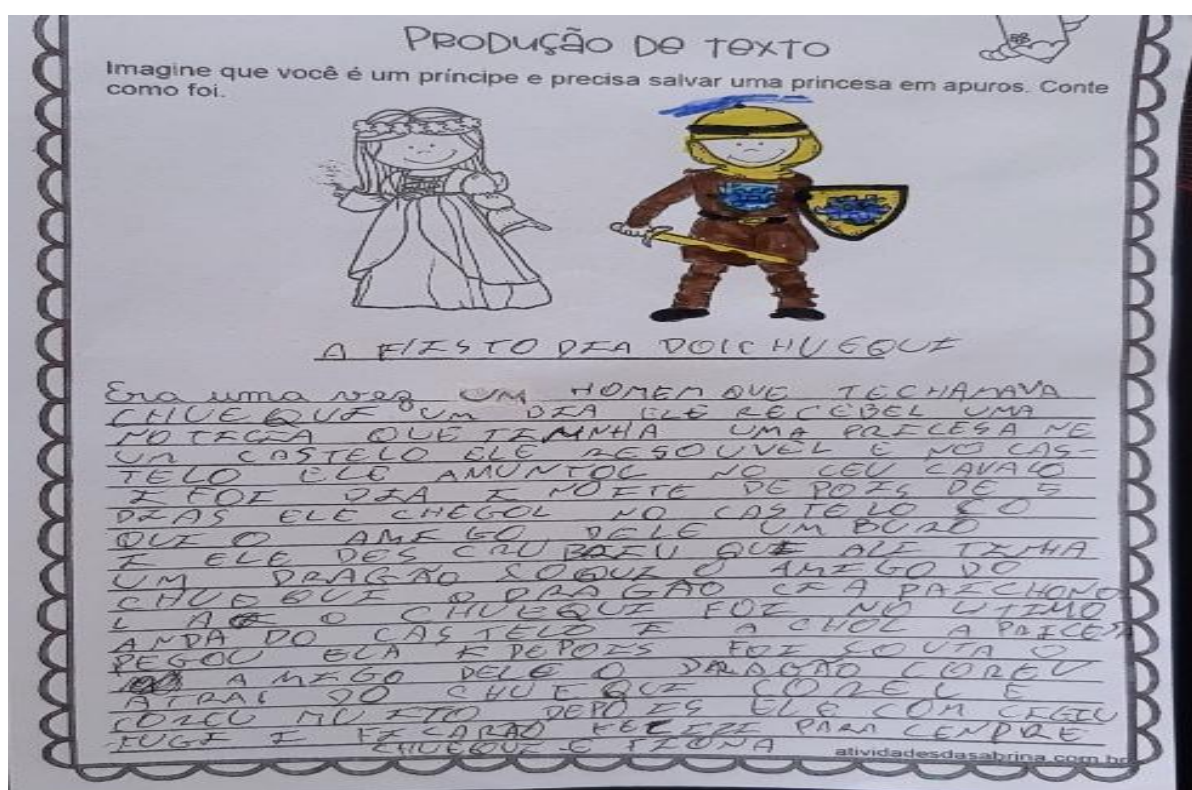 PRODUÇÃO DE TEXTO
Imagine que você é um príncipe e precisa salvar uma princesa em apuros. Conte
como foi.
A FIISTO DIA DO CHUEQUI
Era uma vez UM HOMEM QUE TECHAMAVA
CHUEQUI UM DIA ELE RECEBEL UMA
NOTICIA QUE TINNHA UMA PRICESA NE
UM CASTELO ELE RESOUVEL E NO CAS-
TELO ELE AMUNTOL NO CEU CAVALO
I FOI DIA I NOITE DEPOIS DE 5
DIAS ELE CHEGOL NO CASTELO SO
QUI O AMIGO DELE UM BURO
I ELE DES CRUBRIU QUE ALI TINHA
UM DRAGÃO SOQUI O AMIGO DO
CHUEQUI O DRAGÃO CI A PAICHONO
L O CHUEQUI FOI NO UTIMO
ANDA DO CASTELO I A CHOL A PRICESA
PEGOU ELA E DEPOIS FOI SOUTA O
AMIGO DELE O DARAGÃO COREU
ATRAS DO CHUEQUI COREU E
COREU MUITO DEPOIS ELE COM CIGIU
FUGI I FICARAO FELIZI PARA CENPRE
CHUEQUI E FIONA
atividadesdasabrina.com.br